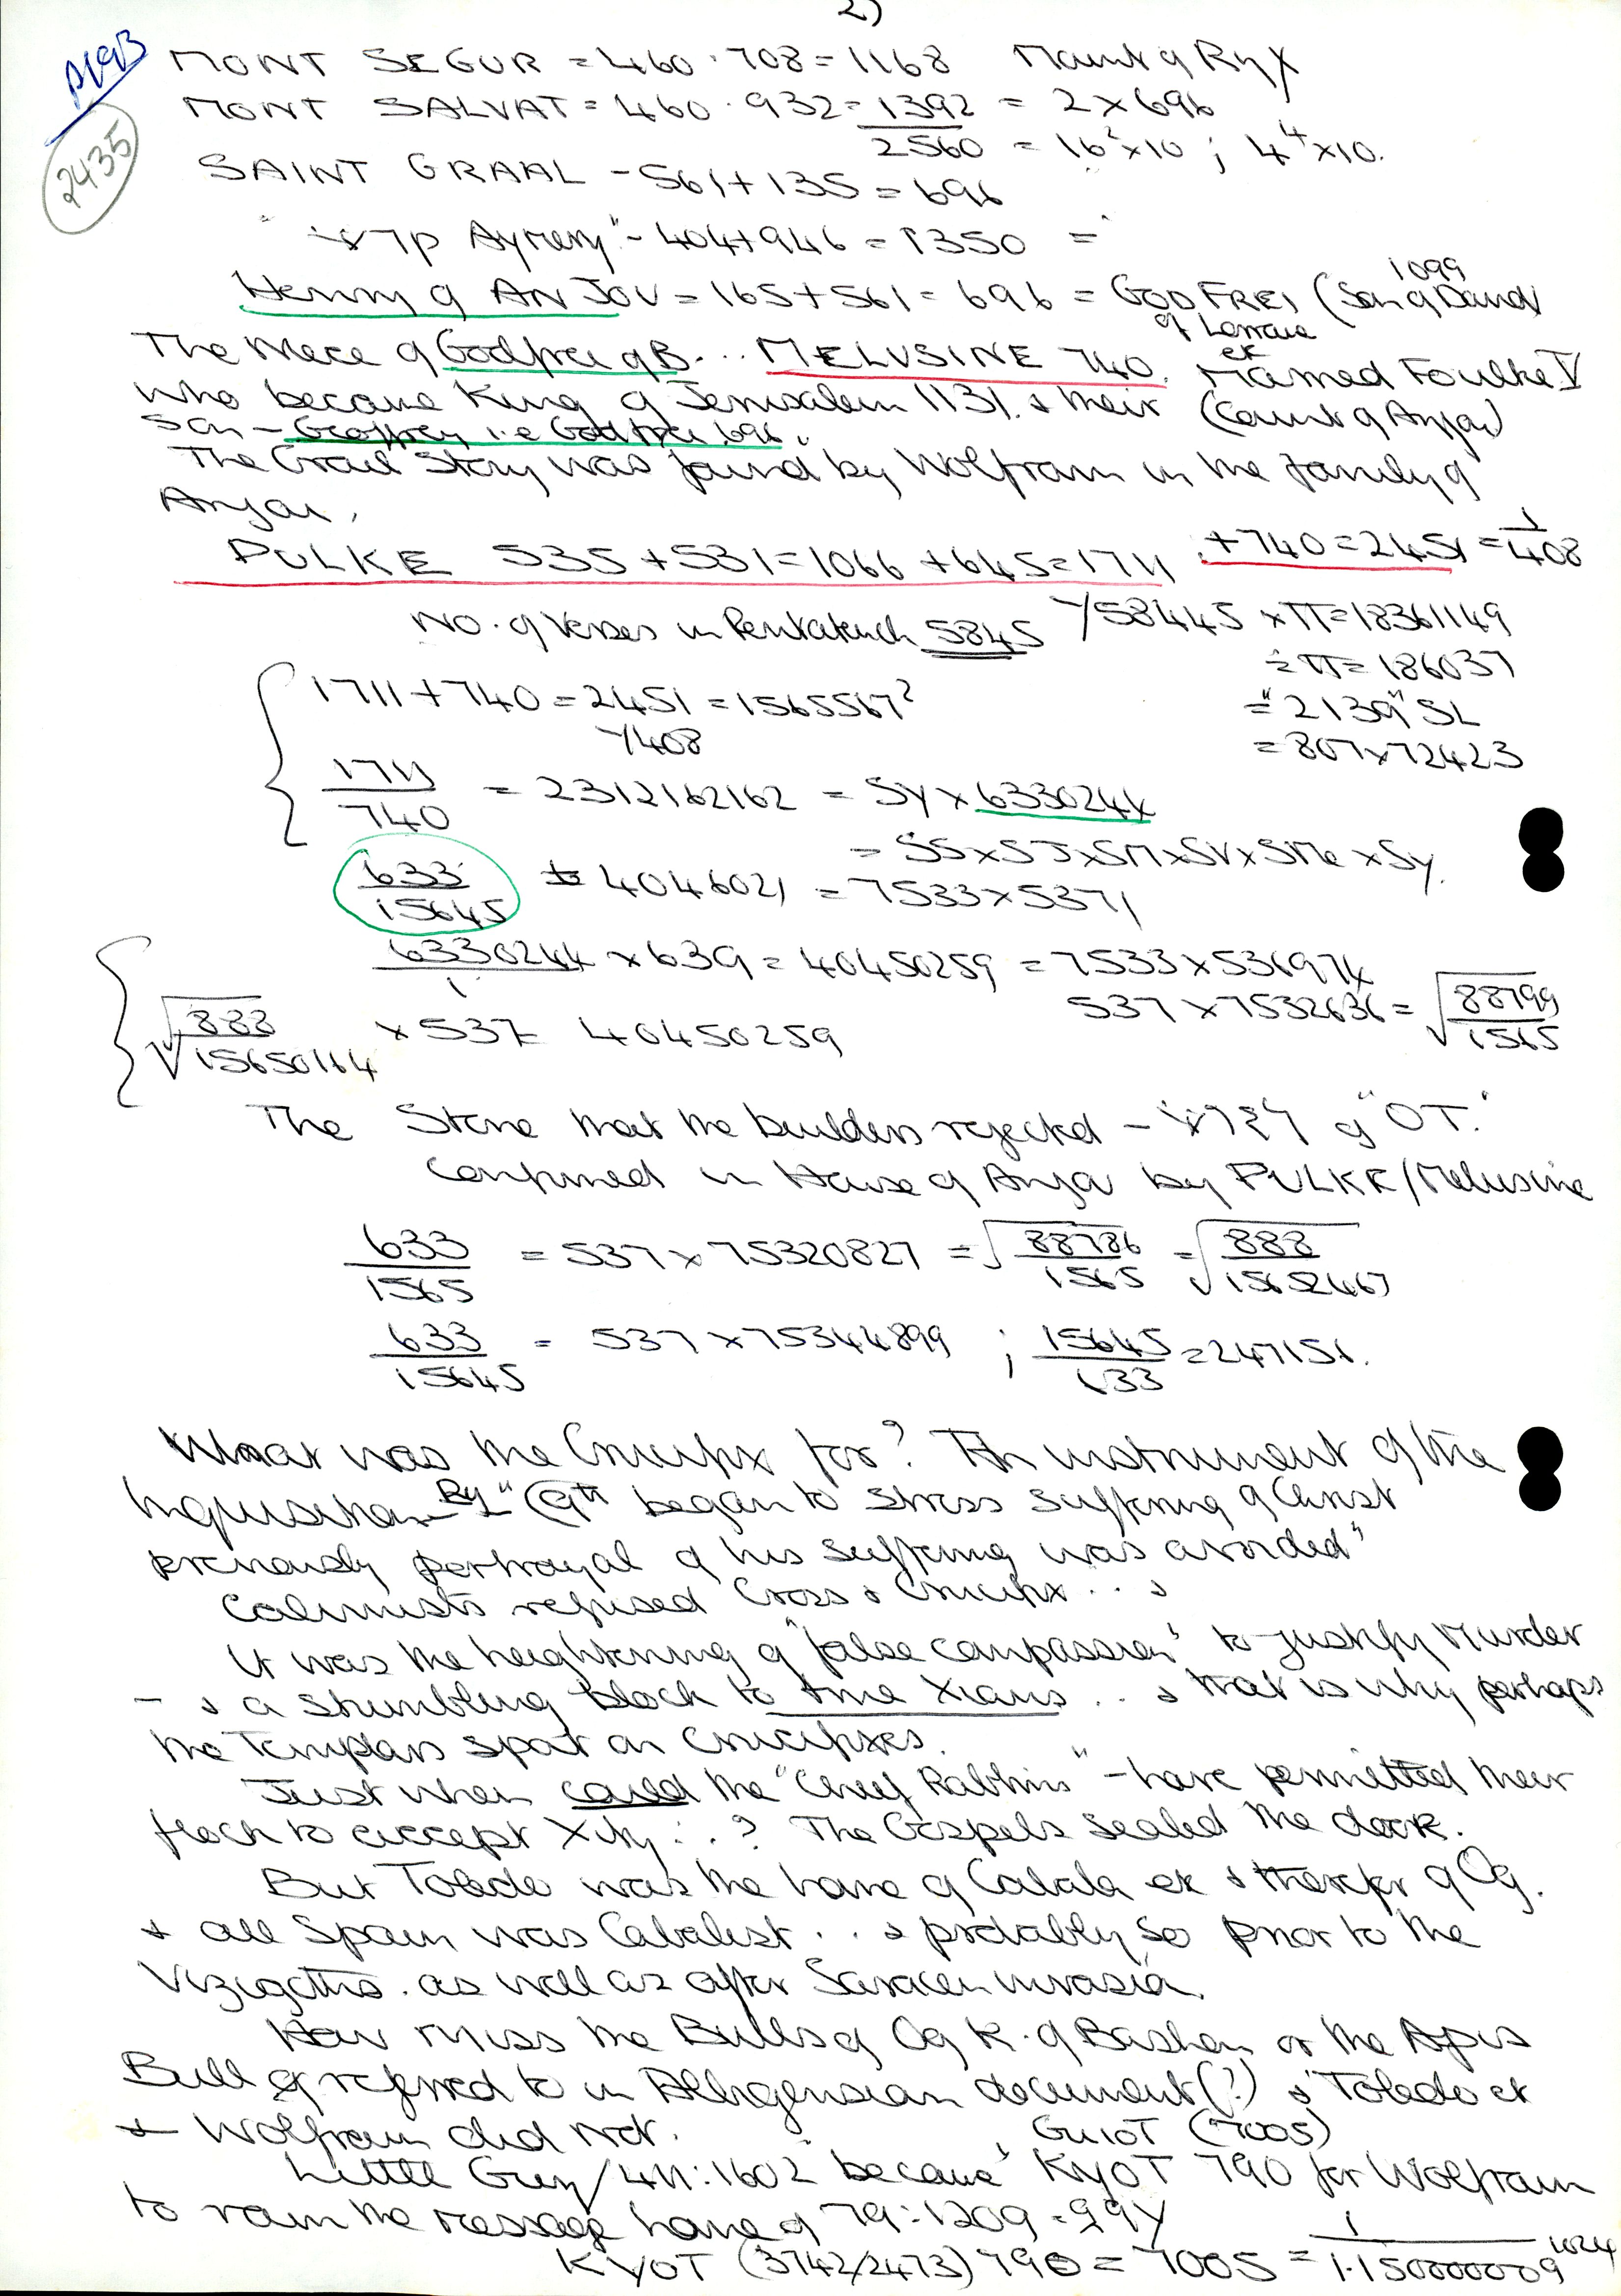 2)
2435
MONT SEGUR = 460 · 708 = 1168 Mount of
MONT SALVAT = 460 · 932 = 1392 = 2 x 696
2560 = 16² x 10 ; 4⁴ x 10.
SAINT GRAAL - 561 + 135 = 696
- 404 + 946 = 1350 =
Henry of ANJOU = 165 + 561 = 696 = GODFREI (Son of David
1099
of Lorraine
The niece of Godfrei of B... MELUSINE 740. Married Foulke V
who became King of Jerusalem 1131. & their (Count of Anjou)
Son - Geoffrey i.e Godfrei 696
The Grail Story was found by Wolfram in the family of
Anjou.
PULKE 535 + 531 = 1066 + 645 = 1711 + 740 = 2451 = 1/408
No. of Verses in Pentateuch 5845 Y58445 x π = 18361149
÷ π = 186037
1711 + 740 = 2451 = 1565567²
= "2139" SL
Y408
= 807 x 72423
1711/740 = 2312162162 = SY x 6330244
= SS x SJ x SM x SV x SMe x Sy.
633/15645 = 4046021 = 7533 x 5371
6330244/1 x 639 = 40450259 = 7533 x 536974
√888/15650164 x 537 = 40450259
537 x 7532636 = √88799/1565
The Stone that the builders rejected - of "OT."
Confirmed in House of Anjou by PULKE/Melusine
633/1565 = 537 x 75320827 = √88786/1565 = √888/15652467
633/15645 = 537 x 75344899 ; 15645/633 = 247151.
What was the Crucifix for? Th instrument of the
Inquisition - By "C9th began to stress suffering of Christ
previously portrayal of his suffering was avoided"
Calvinists refused Cross & Crucifix .. &
It was the heightening of "false compassion" to justify Murder
- & a stumbling block to true Xians .. & that is why perhaps
the Templars spat on Crucifixes.
Just when could the "Chief Rabbis" - have permitted their
flock to accept Xity ..? The Gospels sealed the door.
But Toledo was the home of Cabala et & therefor of Og.
& all Spain was Cabalist .. & probably so prior to the
Vizigoths. as well as after Saracen invasion.
How miss the Bulls of Og K. of Bashan or the Apis
Bull of referred to in Albigensian document (?) & Toledo et
& Wolfram did not.
GUIOT (7005)
Little Guy/411:1602 became KYOT 790 for Wolfram
to ram the message home of 79:1209 = 99Y
KYOT (3742/2473) 790 = 7005 = 1/1.150000009